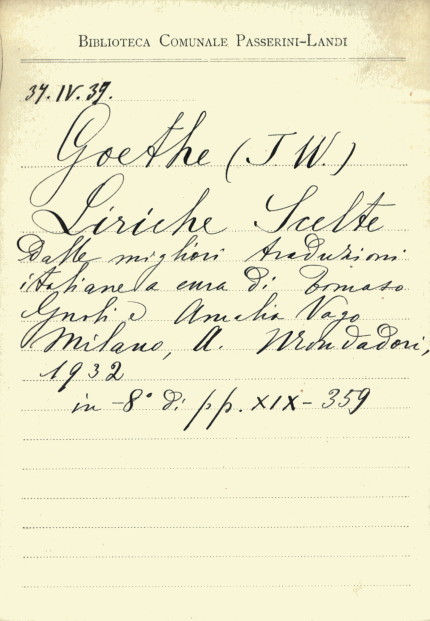 BIBLIOTECA COMUNALE PASSERINI-LANDI
37.IV.39.
Goethe (J W.)
Liriche Scelte
Dalle migliori traduzioni
italiane a cura di Tomaso
Gnoli e Amalia Vago
Milano, A. Mondadori,
1932
in -8° di pp. XIX-359